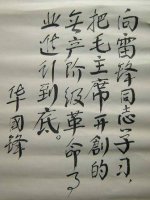 向雷锋同志学习,
把毛主席开創的
无产阶级革命事
业进行到底。
华國锋